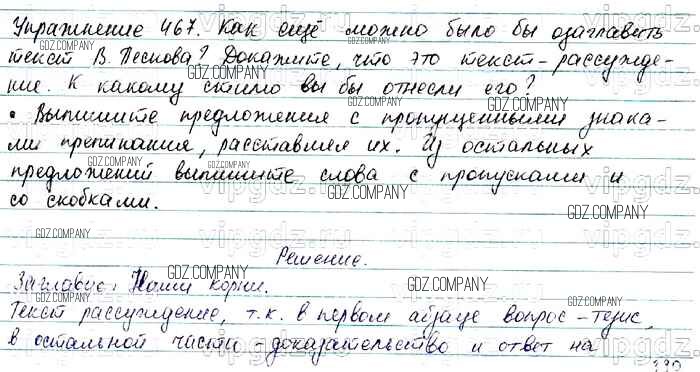 Упражнение 467. Как ещё можно было бы озаглавить
текст В. Пескова? Докажите, что это текст-рассужде-
ние. К какому стилю вы бы отнесли его?
• Выпишите предложения с пропущенными знака-
ми препинания, расставляя их. Из остальных
предложений выпишите слова с пропусками и
со скобками.
Решение.
Заглавие: Наши корни.
Текст рассуждение, т.к. в первом абзаце вопрос-тезис,
в остальной части - доказательство и ответ на
339
GDZ.COMPANY
vipgdz.ru